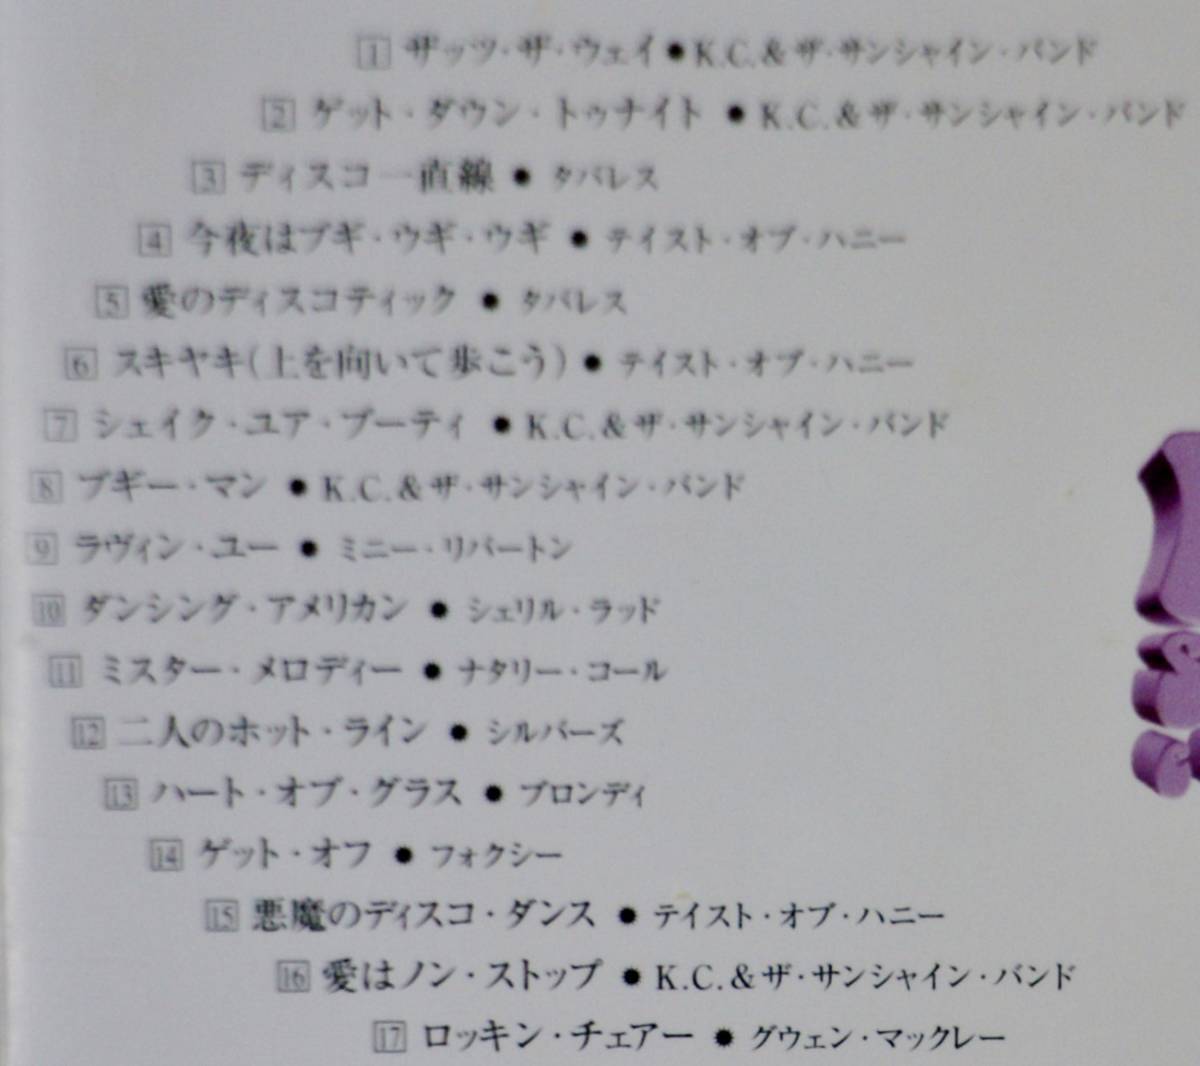 1 ザッツ・ザ・ウェイ●K.C.&ザ・サンシャイン・バンド
2 ゲット・ダウン・トゥナイト●K.C.&ザ・サンシャイン・バンド
3 ディスコ一直線●タバレス
4 今夜はブギ・ウギ・ウギ●テイスト・オブ・ハニー
5 愛のディスコティック●タバレス
6 スキヤキ(上を向いて歩こう)●テイスト・オブ・ハニー
7 シェイク・ユア・ブーティ●K.C.&ザ・サンシャイン・バンド
8 ブギー・マン●K.C.&ザ・サンシャイン・バンド
9 ラヴィン・ユー●ミニー・リパートン
10 ダンシング・アメリカン●シェリル・ラッド
11 ミスター・メロディー●ナタリー・コール
12 二人のホット・ライン●シルバーズ
13 ハート・オブ・グラス●ブロンディ
14 ゲット・オフ●フォクシー
15 悪魔のディスコ・ダンス●テイスト・オブ・ハニー
16 愛はノン・ストップ●K.C.&ザ・サンシャイン・バンド
17 ロッキン・チェアー●グウェン・マックレー